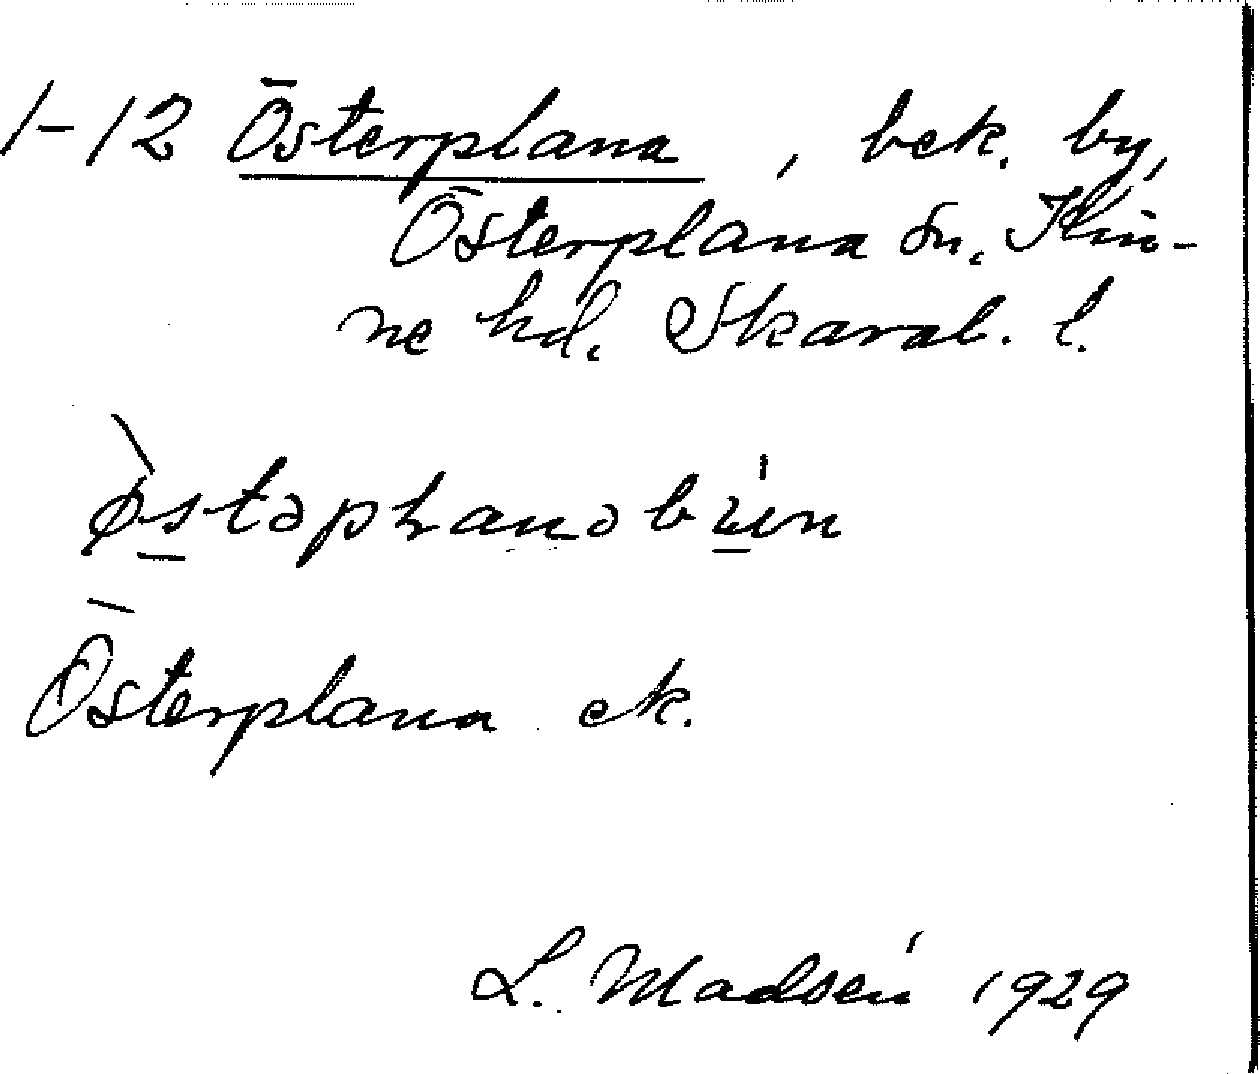 1-12 Österplana, bek. by,
Österplana sn, Kin-
ne hd. Skarab. l.
Österplana ek.
L. Madsén 1929